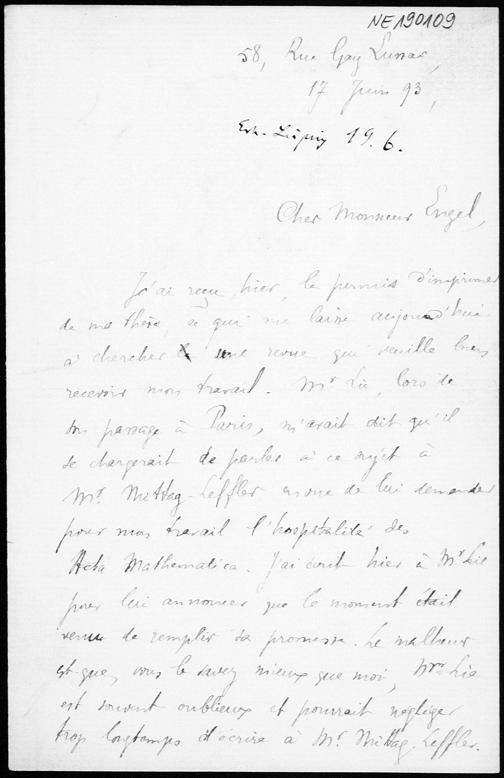 NE190109
58, Rue Gay Lussac,
17 Juin 93,
Leipzig 19.6.
Cher Monsieur Engel,
J'ai reçu, hier, le permis d'imprimer
de ma thèse, ce qui me laisse aujourd'hui
à chercher une revue qui veuille bien
recevoir mon travail. Mr Lie, lors de
son passage à Paris, m'avait dit qu'il
se chargerait de parler à ce sujet à
Mr. Mittag-Leffler en vue de lui demander
pour mon travail l'hospitalité des
Acta Mathematica. J'ai écrit hier à Mr Lie
pour lui annoncer que le moment était
venu de remplir sa promesse. Le malheur
est que, vous le savez mieux que moi, Mr. Lie
est souvent oublieux et pourrait négliger
trop longtemps d'écrire à Mr. Mittag-Leffler.